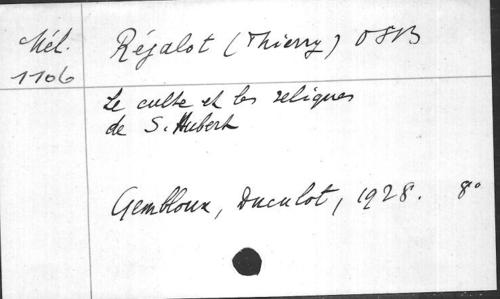 Mél.
1106
Réjalot (Thierry) OSB
Le culte et les reliques
de S. Hubert
Gembloux, Duculot, 1928. 8°